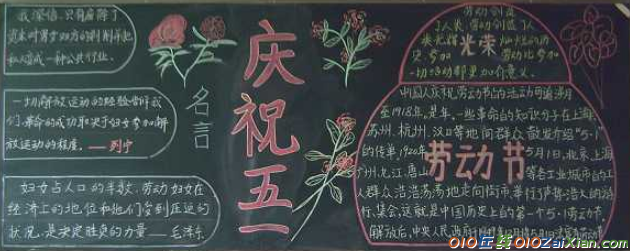 我深信，只有废除了
资本对男女双方的剥削并把
私人家务变成一种公共行业，
一切解放运动的经验告诉我
们，革命的成功取决于妇女参加解
放运动的程度。——列宁
妇女占人口的半数，劳动妇女在
经济上的地位和她们受到压迫的
状况，是决定胜负的力量——毛泽东
名言
庆祝五一
劳动创造
了人类，劳动创造了人
类光辉
光荣
灿烂的历
史，参加
劳动比参加
一切活动都更加有意义。
中国人民祝劳动节的活动可追溯
至1918年。是年，一些革命的知识分子在上海、
苏州、杭州、汉口等地向群众散发介绍“5·1”
的传单。1920年
5月1日，北京、上海
广州、九江、唐山
劳动节
等各工业城市的工
人群众浩浩荡荡地走向街市举行了声势浩大的游
行、集会。这就是中国历史上的第一个5·1劳动节。
解放后，中央人民政府
010在线 010ZaiXian.com